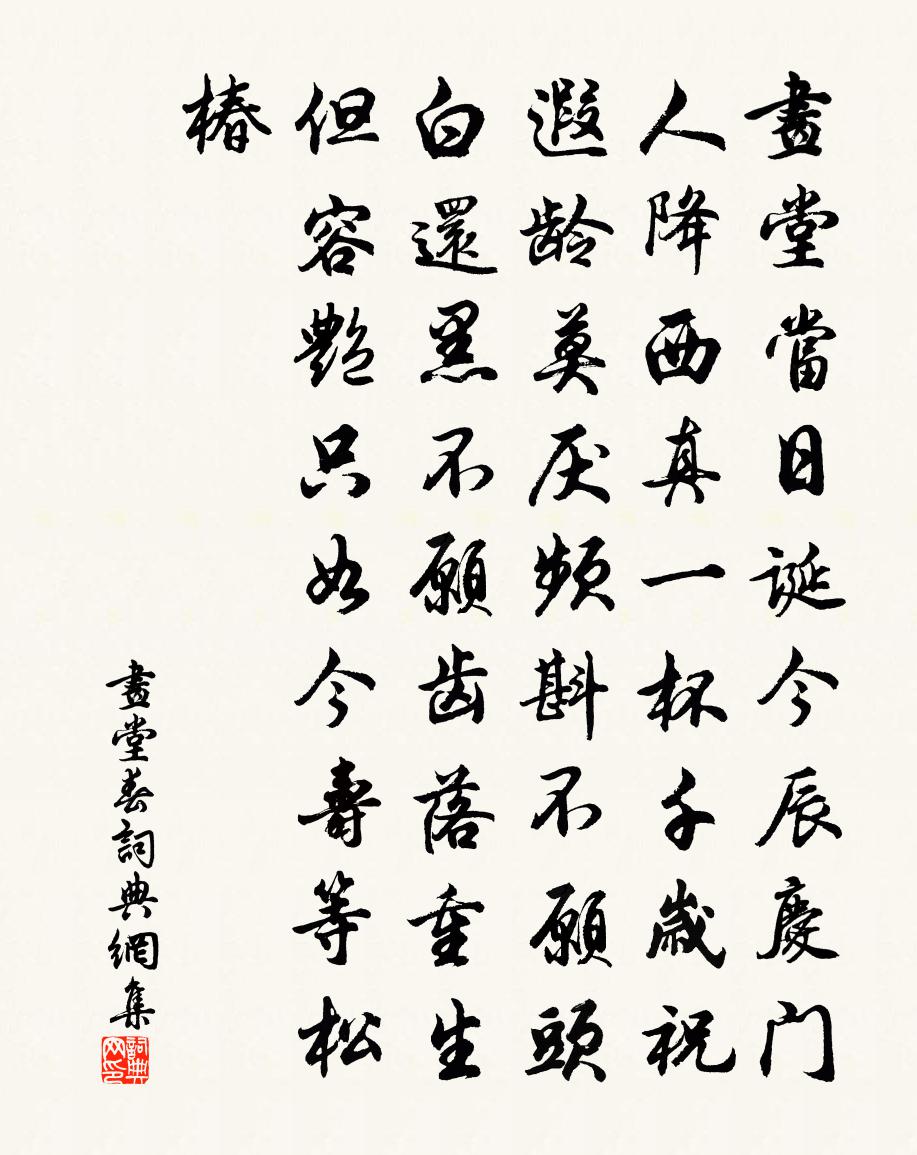 畫堂當日誕今辰慶门
人降西真一杯千歲祝
遐龄莫厌频斟不願頭
白還黑不願齿落重生
但容艷只如今壽等松
椿
畫堂春詞典網集
詞典网印